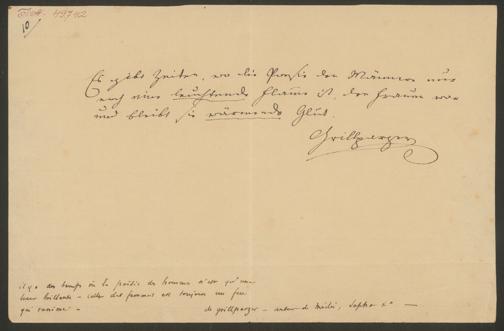 10
Es gibt Zeiten, wo die Poesie den Männern nur
noch eine leuchtende Flamme ist, den Frauen war
und bleibt sie wärmende Glut.
Grillparzer
il y a des temps où la poésie des hommes n'est qu'une
lueur brillante – celle des femmes est toujours un feu
qui ranime –
de grillparzer – auteur de Médée, Sapho